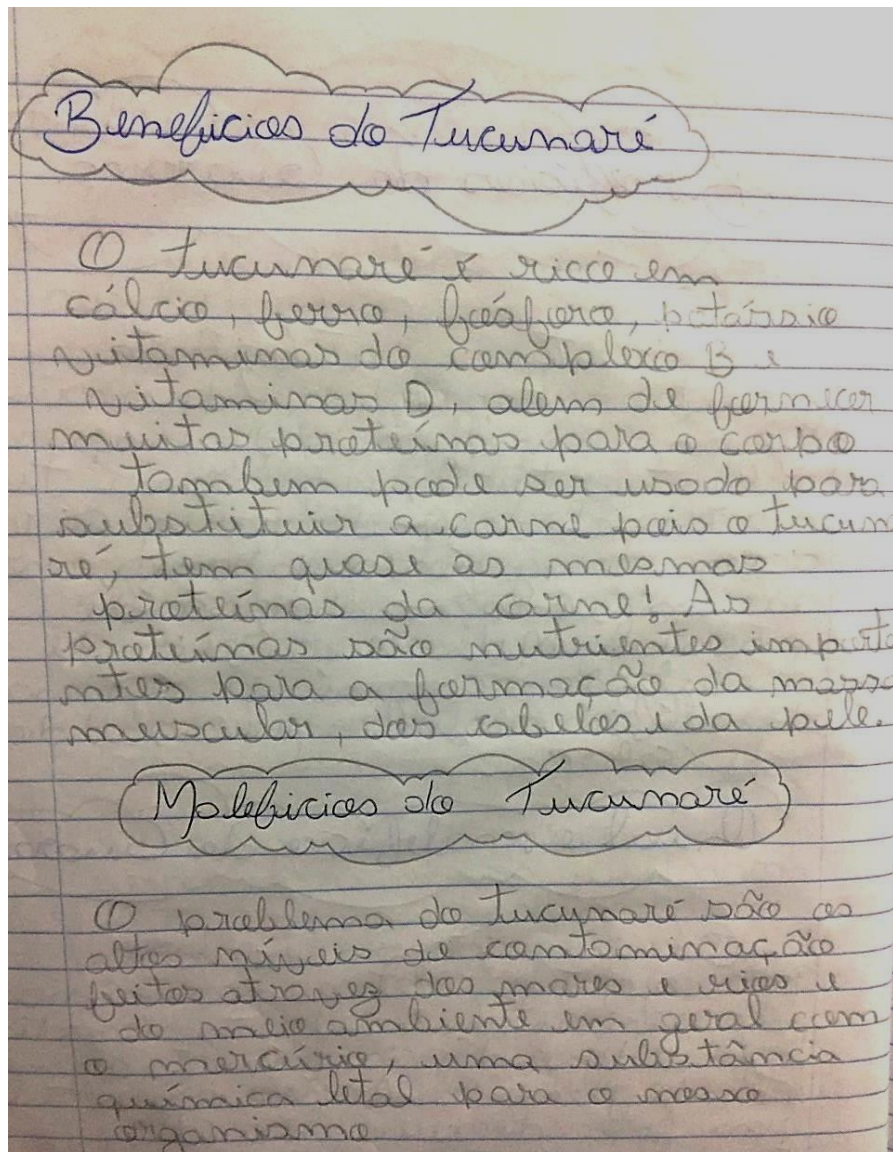 Beneficios do Tucunaré
O tucunaré é rico em
cálcio, ferro, fósforo, potássio
vitaminas do complexo B e
vitaminas D, alem de fornecer
muitas proteínas para o corpo
tambem pode ser usado para
substituir a carne pois o tucun
ré, tem quase as mesmas
proteínas da carne! As
proteínas são nutrientes importa
ntes para a formação da massa
muscular, dos cabelos e da pele.
Maleficios do Tucunaré
O problema do tucunaré são os
altos níveis de contaminação
feitos atravez dos mares e rios e
do meio ambiente em geral com
o mercúrio, uma substância
química letal para o nosso
organismo